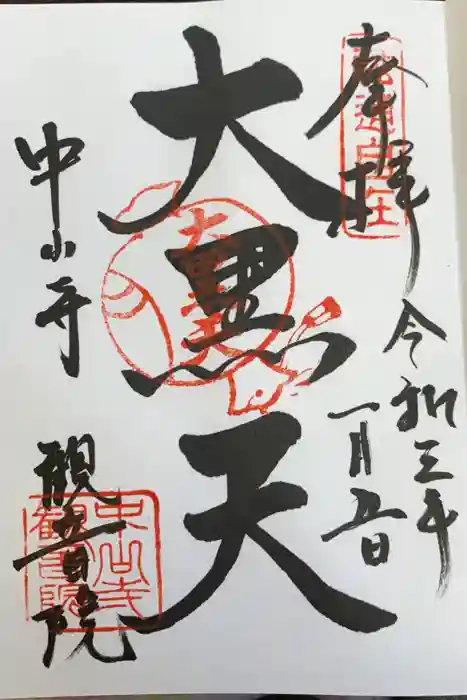 奉拝
令和三年
一月五日
大黒天
中山寺
観音院
大黒天
中山寺
観音院